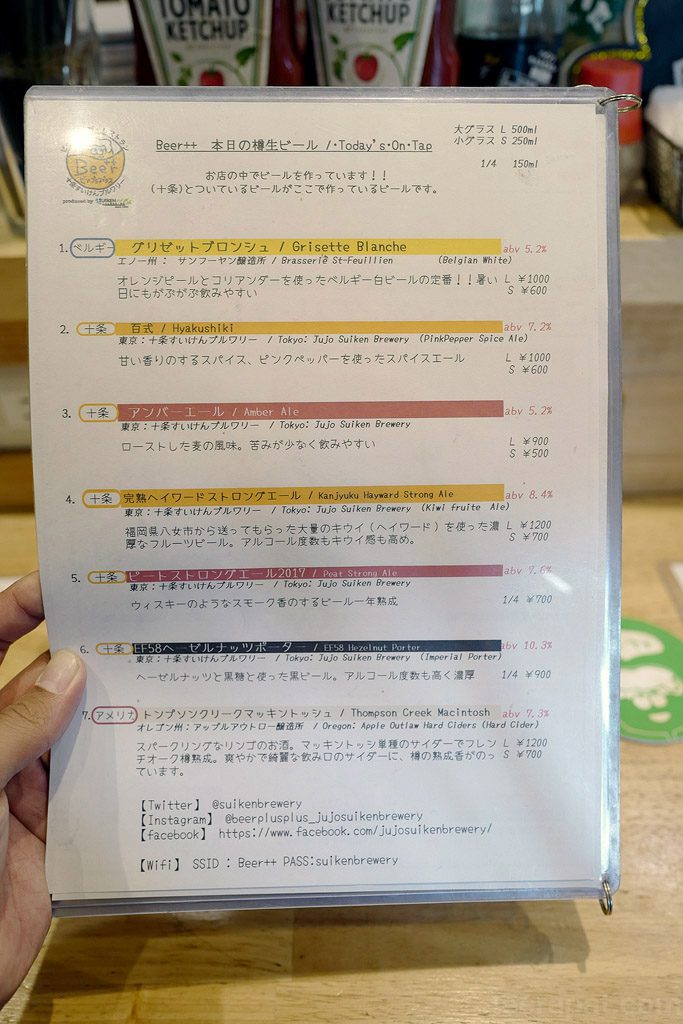 TOMATO
KETCHUP
KETCHUP
Beer
十条すいけんブルワリー
produced by
Beer++ 本日の樽生ビール /・Today's・On・Tap
大グラス L 500ml
小グラス S 250ml
1/4 150ml
お店の中でビールを作っています！！
(十条)とついているビールがここで作っているビールです。
1. ベルギー グリゼットブロンシュ / Grisette Blanche abv 5.2%
エノー州： サンフーヤン醸造所 / Brasserie St-Feuillien (Belgian White)
オレンジピールとコリアンダーを使ったベルギー白ビールの定番！！暑い L ￥1000
日にもがぶがぶ飲みやすい S ￥600
2. 十条 百式 / Hyakushiki abv 7.2%
東京：十条すいけんブルワリー / Tokyo: Jujo Suiken Brewery (PinkPepper Spice Ale)
甘い香りのするスパイス、ピンクペッパーを使ったスパイスエール L ￥1000
S ￥600
3. 十条 アンバーエール / Amber Ale abv 5.2%
東京：十条すいけんブルワリー / Tokyo: Jujo Suiken Brewery
ローストした麦の風味。苦みが少なく飲みやすい L ￥900
S ￥500
4. 十条 完熟ヘイワードストロングエール / Kanjyuku Hayward Strong Ale abv 8.4%
東京：十条すいけんブルワリー / Tokyo: Jujo Suiken Brewery (Kiwi fruite Ale)
福岡県八女市から送ってもらった大量のキウイ（ヘイワード）を使った濃 L ￥1200
厚なフルーツビール。アルコール度数もキウイ感も高め。 S ￥700
5. 十条 ピートストロングエール2017 / Peat Strong Ale abv 7.6%
東京：十条すいけんブルワリー / Tokyo: Jujo Suiken Brewery
ウィスキーのようなスモーク香のするビール一年熟成 1/4 ￥700
6. 十条 EF58ヘーゼルナッツポーター / EF58 Hezelnut Porter abv 10.3%
東京：十条すいけんブルワリー / Tokyo: Jujo Suiken Brewery (Imperial Porter)
ヘーゼルナッツと黒糖と使った黒ビール。アルコール度数も高く濃厚 1/4 ￥900
7. アメリカ トンプソンクリークマッキントッシュ / Thompson Creek Macintosh abv 7.3%
オレゴン州：アップルアウトロー醸造所 / Oregon: Apple Outlaw Hard Ciders (Hard Cider)
スパークリングなリンゴのお酒。マッキントッシ単種のサイダーでフレン L ￥1200
チオーク樽熟成。爽やかで綺麗な飲み口のサイダーに、樽の熟成香がのっ S ￥700
ています。
【Twitter】 @suikenbrewery
【Instagram】 @beerplusplus_jujosuikenbrewery
【facebook】 https://www.facebook.com/jujosuikenbrewery/
【Wifi】 SSID : Beer++ PASS:suikenbrewery